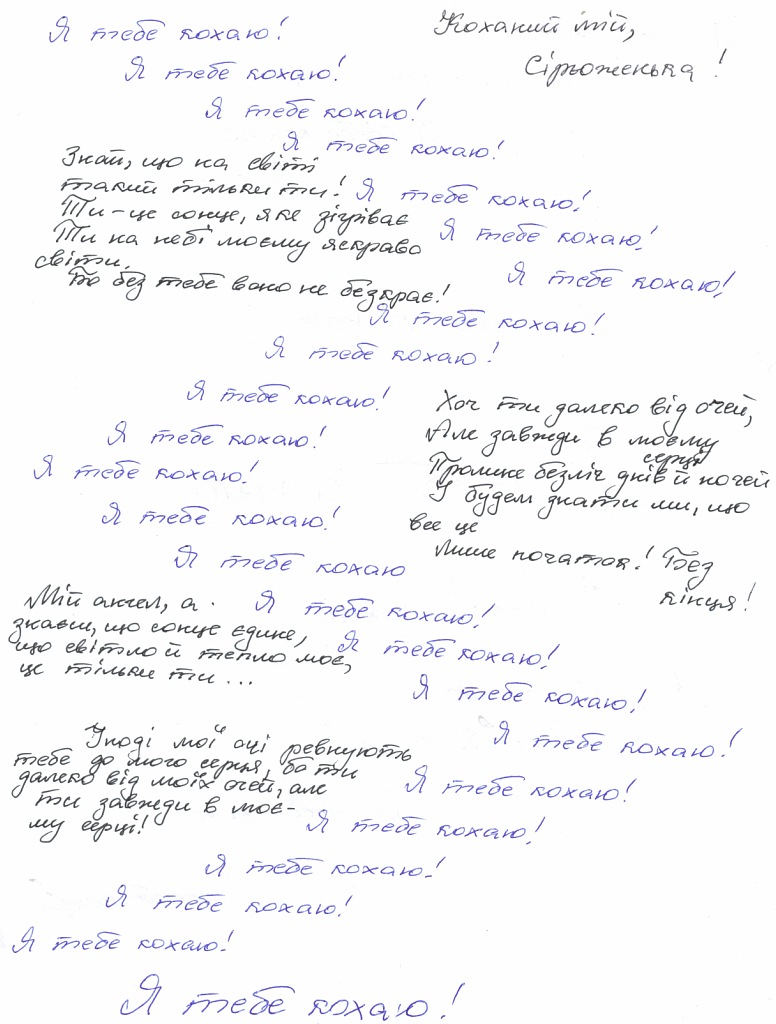 Я тебе кохаю!
Коханий мій,
Сірьоженька!
Я тебе кохаю!
Я тебе кохаю!
Я тебе кохаю!
Знай, що на світі
такий тільки ти!
Я тебе кохаю!
Ти - це сонце, яке зігріває
Я тебе кохаю!
Ти на небі моєму яскраво
світи.
Я тебе кохаю!
Бо без тебе воно не безкрає!
Я тебе кохаю!
Я тебе кохаю!
Я тебе кохаю!
Хоч ти далеко від очей,
Я тебе кохаю!
Але завжди в моєму
серці
Я тебе кохаю!
Промине безліч днів й ночей
І будем знати ми, що
все це
Я тебе кохаю!
Я тебе кохаю
Лише початок! Без
кінця!
Мій ангел, а
Я тебе кохаю!
знаєш, що сонце єдине,
Я тебе кохаю!
що світло й тепло моє,
це тільки ти...
Я тебе кохаю!
Я тебе кохаю!
Іноді мої очі ревнують
тебе до мого серця, бо ти
далеко від моїх очей, але
Я тебе кохаю!
ти завжди в моє-
му серці!
Я тебе кохаю!
Я тебе кохаю!
Я тебе кохаю!
Я тебе кохаю!
Я тебе кохаю!